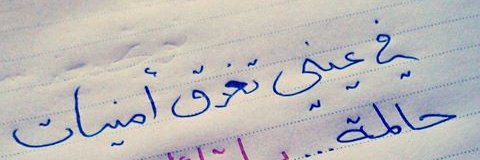 في عيني تغرق أمنيات
حالمة...